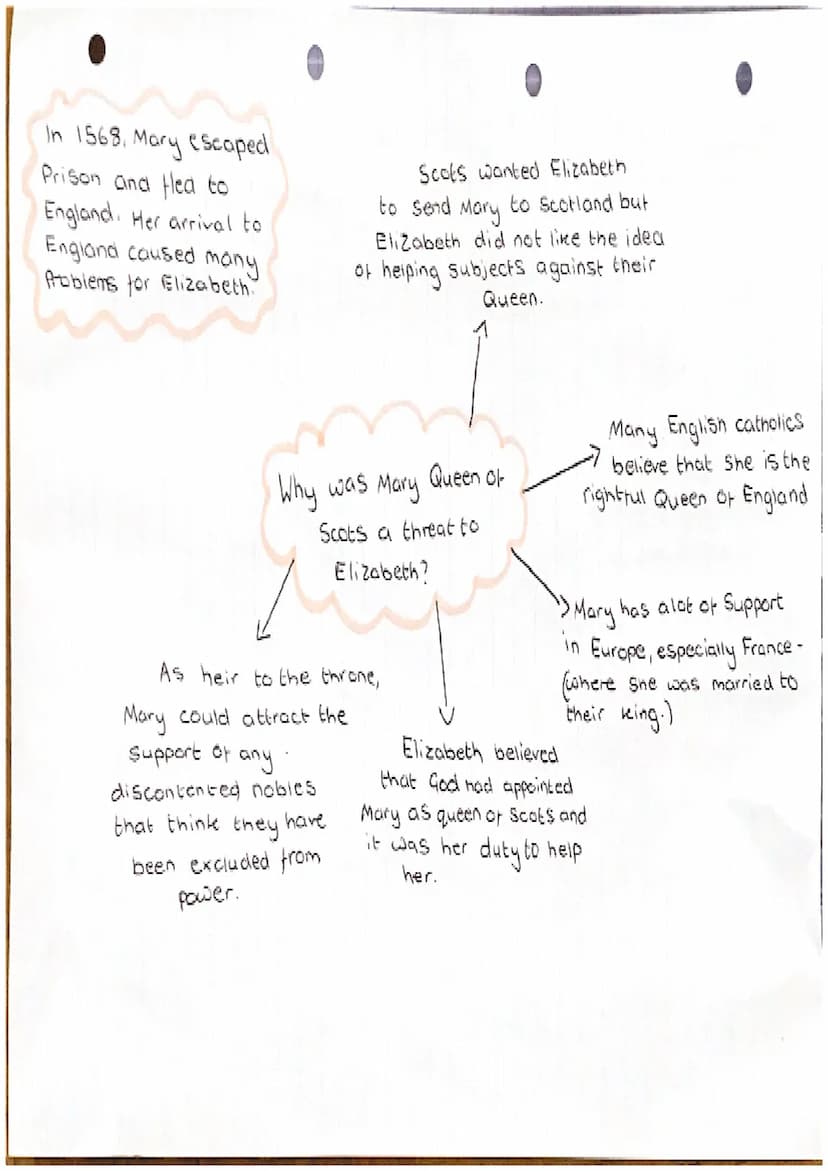 In 1568, Mary escaped
Prison and fled to
England. Her arrival to
England caused many
Problems for Elizabeth.
Scots wanted Elizabeth
to send Mary to Scotland but
Elizabeth did not like the idea
of helping subjects against their
Queen.
Many English catholics
believe that she is the
rightful Queen of England
Why was Mary Queen of
Scots a threat to
Elizabeth?
Mary has alot of Support
in Europe, especially France -
(where she was married to
their king.)
As heir to the throne,
Mary could attract the
support of any
discontented nobles
that think they have
been excluded from
power.
Elizabeth believed
that God had appointed
Mary as queen of Scots and
it was her duty to help
her.